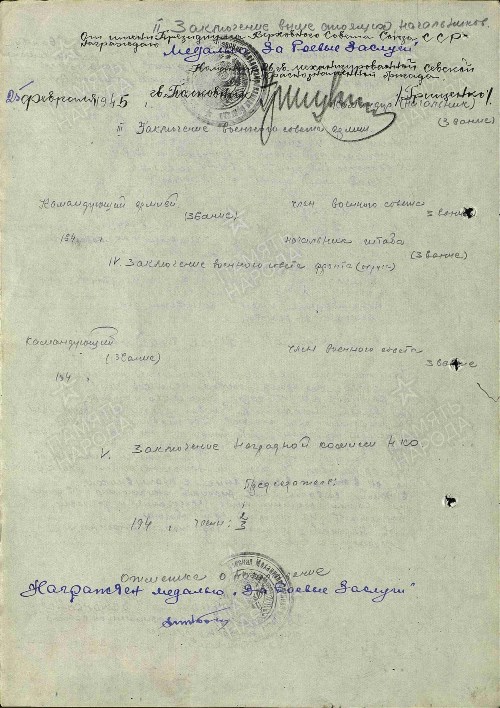 II Заключение выше стоящих начальников.
От имени Президиума Верховного Совета Союза ССР
Награждаю
Медалью "За Боевые Заслуги"
механизированной Севской
Краснознаменной бригады
25 февраля 1945 г.
/Гриценко/
(начальник)
(звание)
III Заключение военного совета армии
Командующий армией
член военного совета
(звание)
звание
194 г.
начальник штаба
(звание)
IV. Заключение военного совета фронта (округа)
Командующий
член военного совета
(звание)
звание
194 .
V. Заключение Наградной комисии НКО
Председатель:
194 г. члены: 1
2
3
Отметка о
Награжден медалью "За Боевые Заслуги"
ПАМЯТЬ
НАРОДА